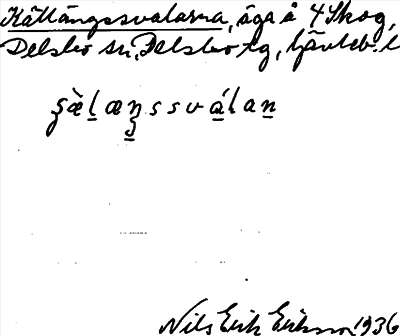 Källängssvalarna, äga å 4 Skog,
Delsbo sn, Delsbo tg, Gävleb. l
Nils Erik Eriksson 1936